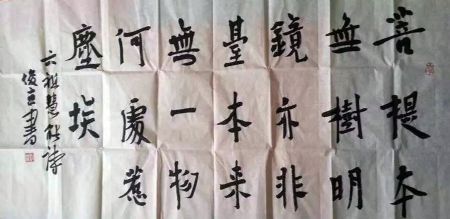 菩提本
無樹明
鏡亦非
臺本来
無一物
何處惹
塵埃
六祖慧能诗
俊書